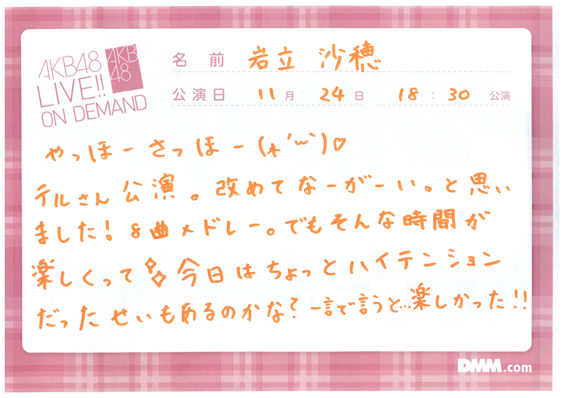 AKB48
LIVE!!
ON DEMAND
AKB
48
名 前 岩立 沙穂
公演日 11月 24日 18:30 公演
やっほーさっほー(*´ω`)♡
テルさん公演。改めてなーがーい。と思い
ました! 8曲メドレー。でもそんな時間が
楽しくって 今日はちょっとハイテンション
だったせいもあるのかな? 一言で言うと…楽しかった!!
DMM.com